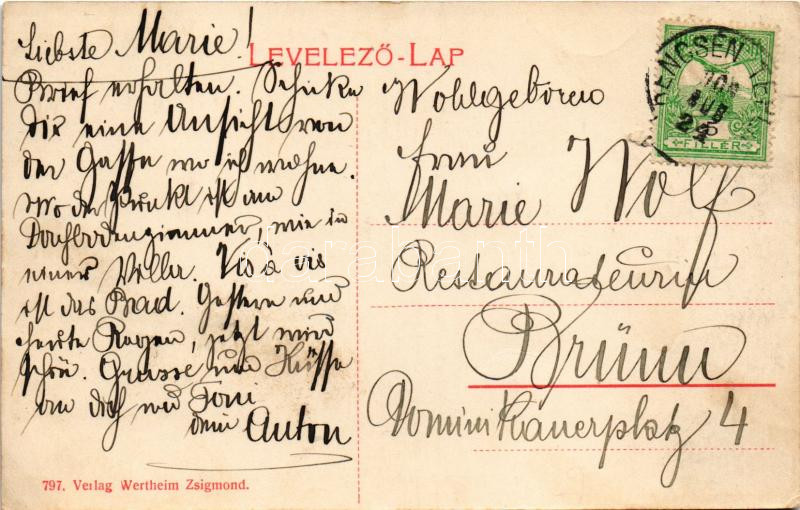 LEVELEZŐ-LAP
Liebste Marie!
Brief erhalten. Schicke
Dir eine Ansicht von
der Gasse wo ich wohne.
Wo der Punkt ist am
Dachbodenzimmer, wie in
einer Villa. Vis a vis
ist das Bad. Gestern und
heute Regen, jetzt wird
schön. Grüsse und Küsse
an dich und Toni
dein Anton
Wohlgeboren
Frau
Marie Wolf
Restaurateurin
Brünn
Dominikanerplatz 4
TRENCSÉN TEP
908 AUG 24
FILLÉR
darabanth
797. Verlag Wertheim Zsigmond.